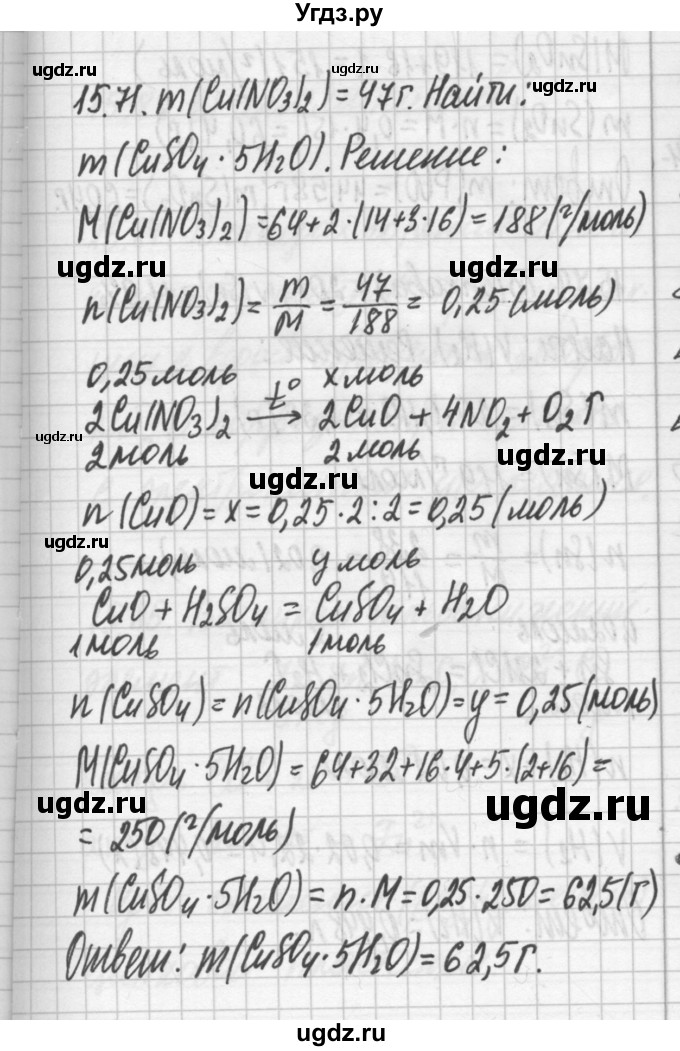 Угдз.ру
ugdz.ru ugdz.ru
15.71. m(Cu(NO3)2)=47г. Найти:
ugdz.ru
m(CuSO4·5H2O). Решение:
M(Cu(NO3)2)=64+2·(14+3·16)=188(г/моль)
ugdz.ru ugdz.ru
n(Cu(NO3)2)=m/M=47/188=0,25(моль)
0,25моль x моль
2Cu(NO3)2 t°→ 2CuO+4NO2+O2↑
ugdz.ru
2моль 2моль
ugdz.ru ugdz.ru
n(CuO)=x=0,25·2:2=0,25(моль)
ugdz.ru
0,25моль y моль
CuO+H2SO4=CuSO4+H2O
1моль 1моль
ugdz.ru ugdz.ru
n(CuSO4)=n(CuSO4·5H2O)=y=0,25(моль)
M(CuSO4·5H2O)=64+32+16·4+5·(2+16)=
ugdz.ru ugdz.ru
=250(г/моль)
m(CuSO4·5H2O)=n·M=0,25·250=62,5(г)
ugdz.ru ugdz.ru
Ответ: m(CuSO4·5H2O)=62,5г.
ugdz.ru